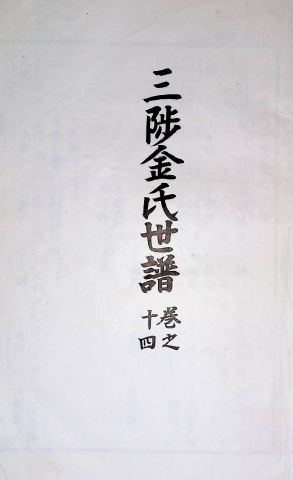 三陟金氏世譜
卷之
十四